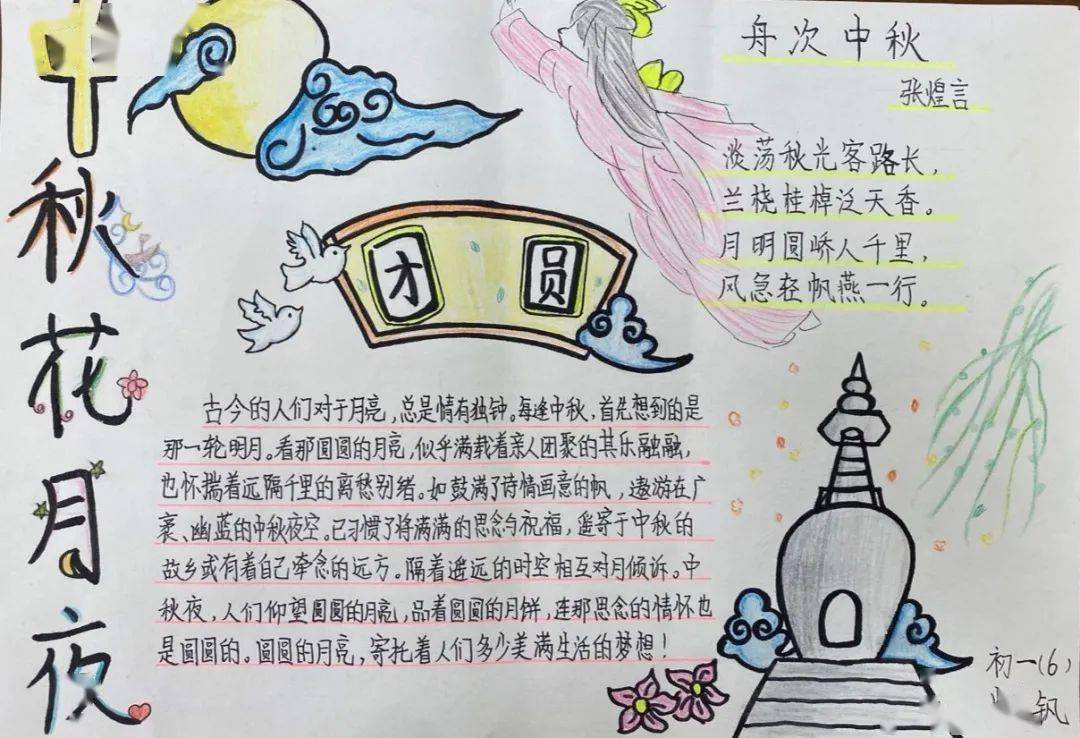 中秋花月夜
团圆
舟次中秋
张煌言
淡荡秋光客路长,
兰桡桂棹泛天香。
月明圆峤人千里,
风急轻帆燕一行。
古今的人们对于月亮,总是情有独钟。每逢中秋,首先想到的是
那一轮明月。看那圆圆的月亮,似乎满载着亲人团聚的其乐融融,
也怀揣着远隔千里的离愁别绪。如鼓满了诗情画意的帆,遨游在广
袤、幽蓝的中秋夜空。已习惯了将满满的思念与祝福,遥寄于中秋的
故乡或有着自己牵念的远方。隔着遥远的时空相互对月倾诉。中
秋夜,人们仰望圆圆的月亮,品着圆圆的月饼,连那思念的情怀也
是圆圆的。圆圆的月亮,寄托着人们多少美满生活的梦想!
初一(6)
钒